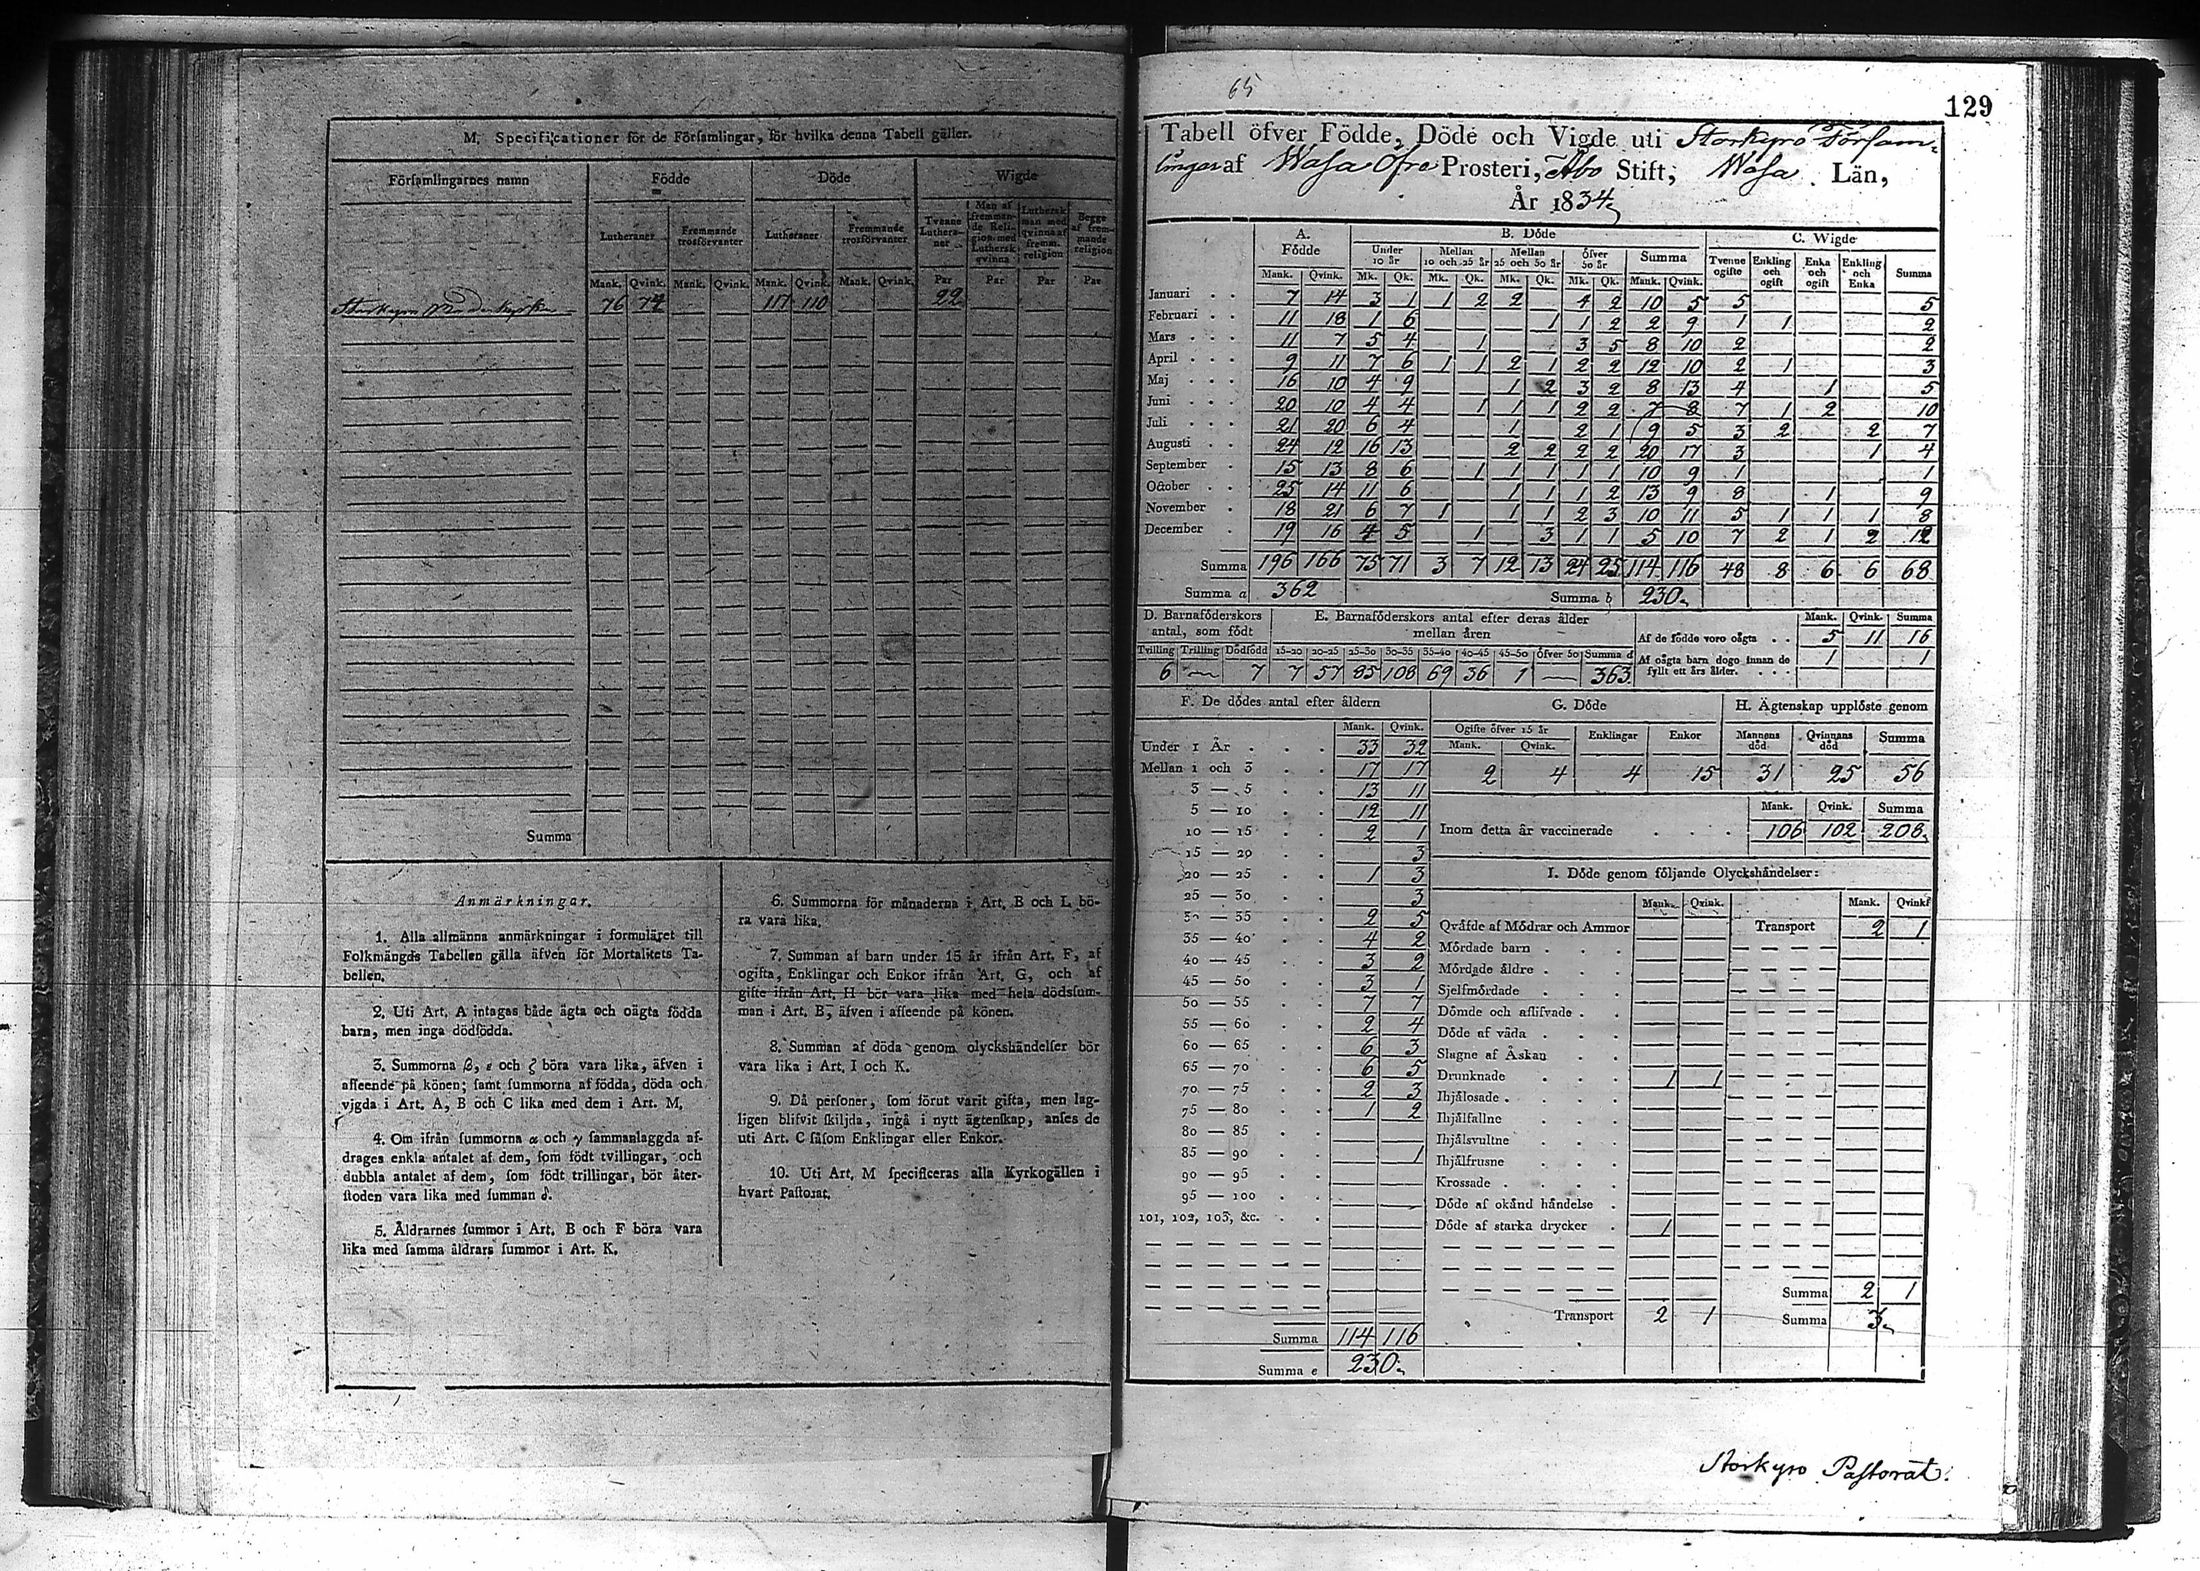 M. Specificationer för de Församlingar, för hvilka denna Tabell gäller.
Församlingarnes namn Födde Döde Wigde
Lutheraner Fremmande trosförvanter Lutheraner Fremmande trosförvanter Tvenne Lutheraner Man af fremmande Religion med Luthersk qvinna Luthersk man med qvinna af fremm. religion Begge af fremmande religion
Mank. Qvink. Mank. Qvink. Mank. Qvink. Mank. Qvink. Par Par Par Par
Storkyro Moderkyrka 76 74 117 110 22
Summa
Anmärkningar.
1. Alla allmänna anmärkningar i formuläret till
Folkmängds Tabellen gälla äfven för Mortalitets Ta-
bellen.
2. Uti Art. A intagas både ägta och oägta födda
barn, men inga dödfödda.
3. Summorna β, ε och ζ böra vara lika, äfven i
afseende på könen; samt summorna af födda, döda och
vigda i Art. A, B och C lika med dem i Art. M.
4. Om ifrån summorna α och γ sammanlaggda af-
drages enkla antalet af dem, som födt tvillingar, och
dubbla antalet af dem, som födt trillingar, bör åter-
stoden vara lika med summan δ.
5. Åldrarnes summor i Art. B och F böra vara
lika med samma åldrars summor i Art. K.
6. Summorna för månaderna i Art. B och L bö-
ra vara lika.
7. Summan af barn under 15 år ifrån Art. F, af
ogifta, Enklingar och Enkor ifrån Art. G, och af
gifte ifrån Art. H bör vara lika med hela dödssum-
man i Art. B, äfven i afseende på könen.
8. Summan af döda genom olyckshändelser bör
vara lika i Art. I och K.
9. Då personer, som förut varit gifta, men lag-
ligen blifvit skiljda, ingå i nytt ägtenskap, anses de
uti Art. C såsom Enklingar eller Enkor.
10. Uti Art. M specificeras alla Kyrkogällen i
hvart Pastorat.
65
129
Tabell öfver Födde, Döde och Vigde uti Storkyro Försam-
lingar af Wasa Öfre Prosteri, Åbo Stift, Wasa Län,
År 1834.
A. Födde B. Döde C. Wigde
Under 10 år Mellan 10 och 25 år Mellan 25 och 50 år Öfver 50 år Summa Tvenne ogifte Enkling och ogift Enka och ogift Enkling och Enka Summa
Mank. Qvink. Mk. Qk. Mk. Qk. Mk. Qk. Mk. Qk. Mank. Qvink.
Januari 7 14 3 1 1 2 2 4 2 10 5 5 5
Februari 11 18 1 6 1 1 2 2 9 1 1 2
Mars 11 7 5 4 1 3 5 8 10 2 2
April 9 11 7 6 1 1 2 1 2 2 12 10 2 1 3
Maj 16 10 4 9 1 2 3 2 8 13 4 1 5
Juni 20 10 4 4 1 1 1 2 2 7 8 7 1 2 10
Juli 21 20 6 4 1 2 1 9 5 3 2 2 7
Augusti 24 12 16 13 2 2 2 2 20 17 3 1 4
September 15 13 8 6 1 1 1 1 1 10 9 1 1
October 25 14 11 6 1 1 1 2 13 9 8 1 9
November 18 21 6 7 1 1 1 2 3 10 11 5 1 1 1 8
December 19 16 4 5 1 3 1 1 5 10 7 2 1 2 12
Summa 196 166 75 71 3 7 12 13 24 25 114 116 48 8 6 6 68
Summa a 362 Summa b 230
D. Barnaföderskors antal, som födt
Tvilling Trilling Dödfödd
6 — 7
E. Barnaföderskors antal efter deras ålder mellan åren
15-20 20-25 25-30 30-35 35-40 40-45 45-50 öfver 50 Summa d
7 57 85 108 69 36 1 — 363
Mank. Qvink. Summa
Af de födde voro oägta 5 11 16
Af oägta barn dogo innan de fyllt ett års ålder. 1 1
F. De dödes antal efter åldern
Mank. Qvink.
Under 1 År 33 32
Mellan 1 och 3 17 17
3 — 5 13 11
5 — 10 12 11
10 — 15 2 1
15 — 20 3
20 — 25 1 3
25 — 30 3
30 — 35 2 5
35 — 40 4 2
40 — 45 3 2
45 — 50 3 1
50 — 55 7 7
55 — 60 2 4
60 — 65 6 3
65 — 70 6 5
70 — 75 2 3
75 — 80 1 2
80 — 85
85 — 90 1
90 — 95
95 — 100
101, 102, 103, &c.
Summa 114 116
Summa e 230
G. Döde
Ogifte öfver 15 år Enklingar Enkor
Mank. Qvink.
2 4 4 15
H. Ägtenskap upplöste genom
Mannens död Qvinnans död Summa
31 25 56
Mank. Qvink. Summa
Inom detta år vaccinerade 106 102 208
I. Döde genom följande Olyckshändelser:
Mank. Qvink. Mank. Qvink.
Qväfde af Mödrar och Ammor Transport 2 1
Mördade barn
Mördade äldre
Sjelfmördade
Dömde och aflifvade
Döde af våda
Slagne af Åskan
Drunknade 1 1
Ihjälosade
Ihjälfallne
Ihjälsvultne
Ihjälfrusne
Krossade
Döde af okänd händelse
Döde af starka drycker 1
Summa 2 1
Transport 2 1 Summa 3
Storkyro Pastorat.